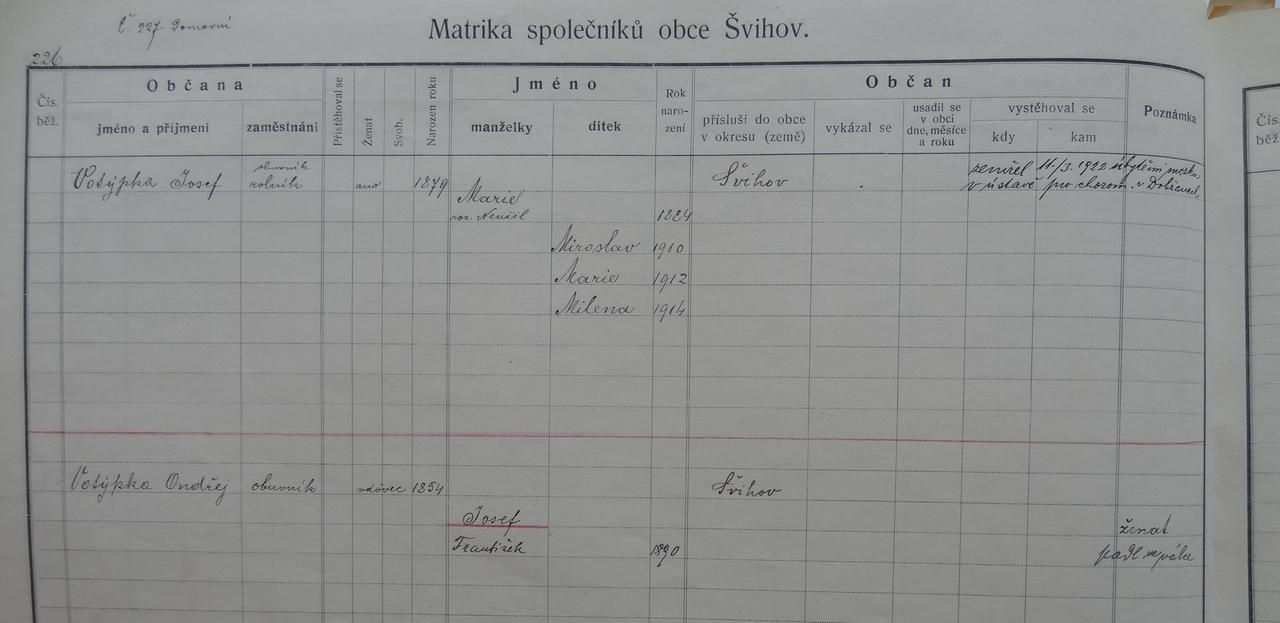 č. 227 Domovní
Matrika společníků obce Švihov.
226
Čís. běž.
Občana
jméno a příjmení
zaměstnání
Přistěhoval se
Ženat
Svob.
Narozen roku
Jméno
manželky
dítek
Rok naro- zení
Občan
přísluší do obce v okresu (země)
vykázal se
usadil se v obci dne, měsíce a roku
vystěhoval se
kdy
kam
Poznámka
Čís. běž.
obuvník
Votýpka Josef rolník ano 1879 Švihov zemřel 11./3. 1922 úbytěm mozku
v ústavě pro chorom. v Dobřanech
Marie
roz. Nenáhl 1884
Miroslav 1910
Marie 1912
Milena 1914
Votýpka Ondřej obuvník vdovec 1854 Švihov
Josef ženat
František 1890 padl ve válce